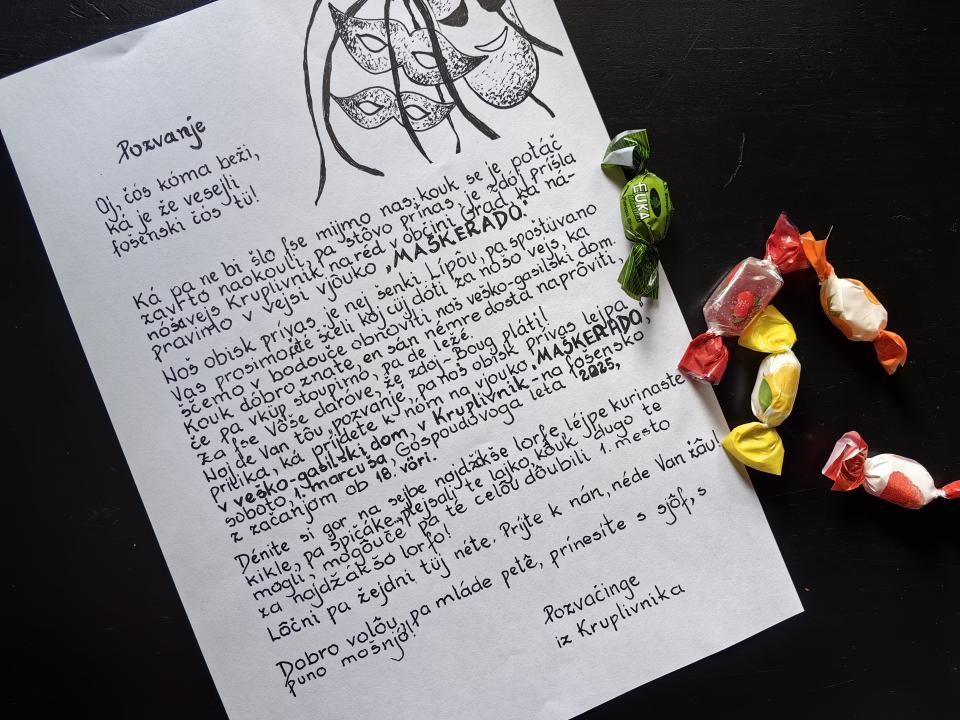 Pozvanje
Oj, čós kóma beži,
ká je že vesejli
fošenski čós tü!
Ká pa ne bi šlo fse mijmo nas, kouk se je potáč
zavrto naokouli, pa stôvo prínas, je zdôj príšla
nósavejs Kruplivnik naréd v občini Grad, ka na-
pravimo v vejsi vjóuko „MAŠKERADO."
Noš obisk prívas je nej senki Lípou, pa spoštüvano
Vas prosimo, če ščéli koj cüj dóti za nóšo vejs, ka
ščemo v bodouče obnoviti noš veško-gasilski dom.
Kouk dóbro znate, en sán némre dosta naprôviti,
če pa vküp stoupimo, pa de ležé.
Za fse vóše darove, že zdaj Boug pláti!
Noj de Van tóu pozvanje, pa noš obisk prívas lejpa
prilika, ká prídete k nóm na vjouko „MAŠKERADO",
v veško-gasilski dom, v Kruplivnik - na fošensko
soboto, 1. marcuša, Góspoudovoga leta 2025,
z začanjom ob 18. vöri.
Dénite si gor na sejbe najdžákše lorfe, léjpe kurinaste
kikle, pa špičáke, plejsali te lajko, kouk dugo te
mogli, mogôuče pa te celôu dôubili 1. mesto
za najdžákšo lorfo!
Lôčni pa žejdni tüj néte. Príjte k nán, néde Van žâu!
Dobro volôu, pa mláde petê, prínesite s sjôf, s
puno mošnjôf!
Pozvačinge
iz Kruplivnika
EUKA